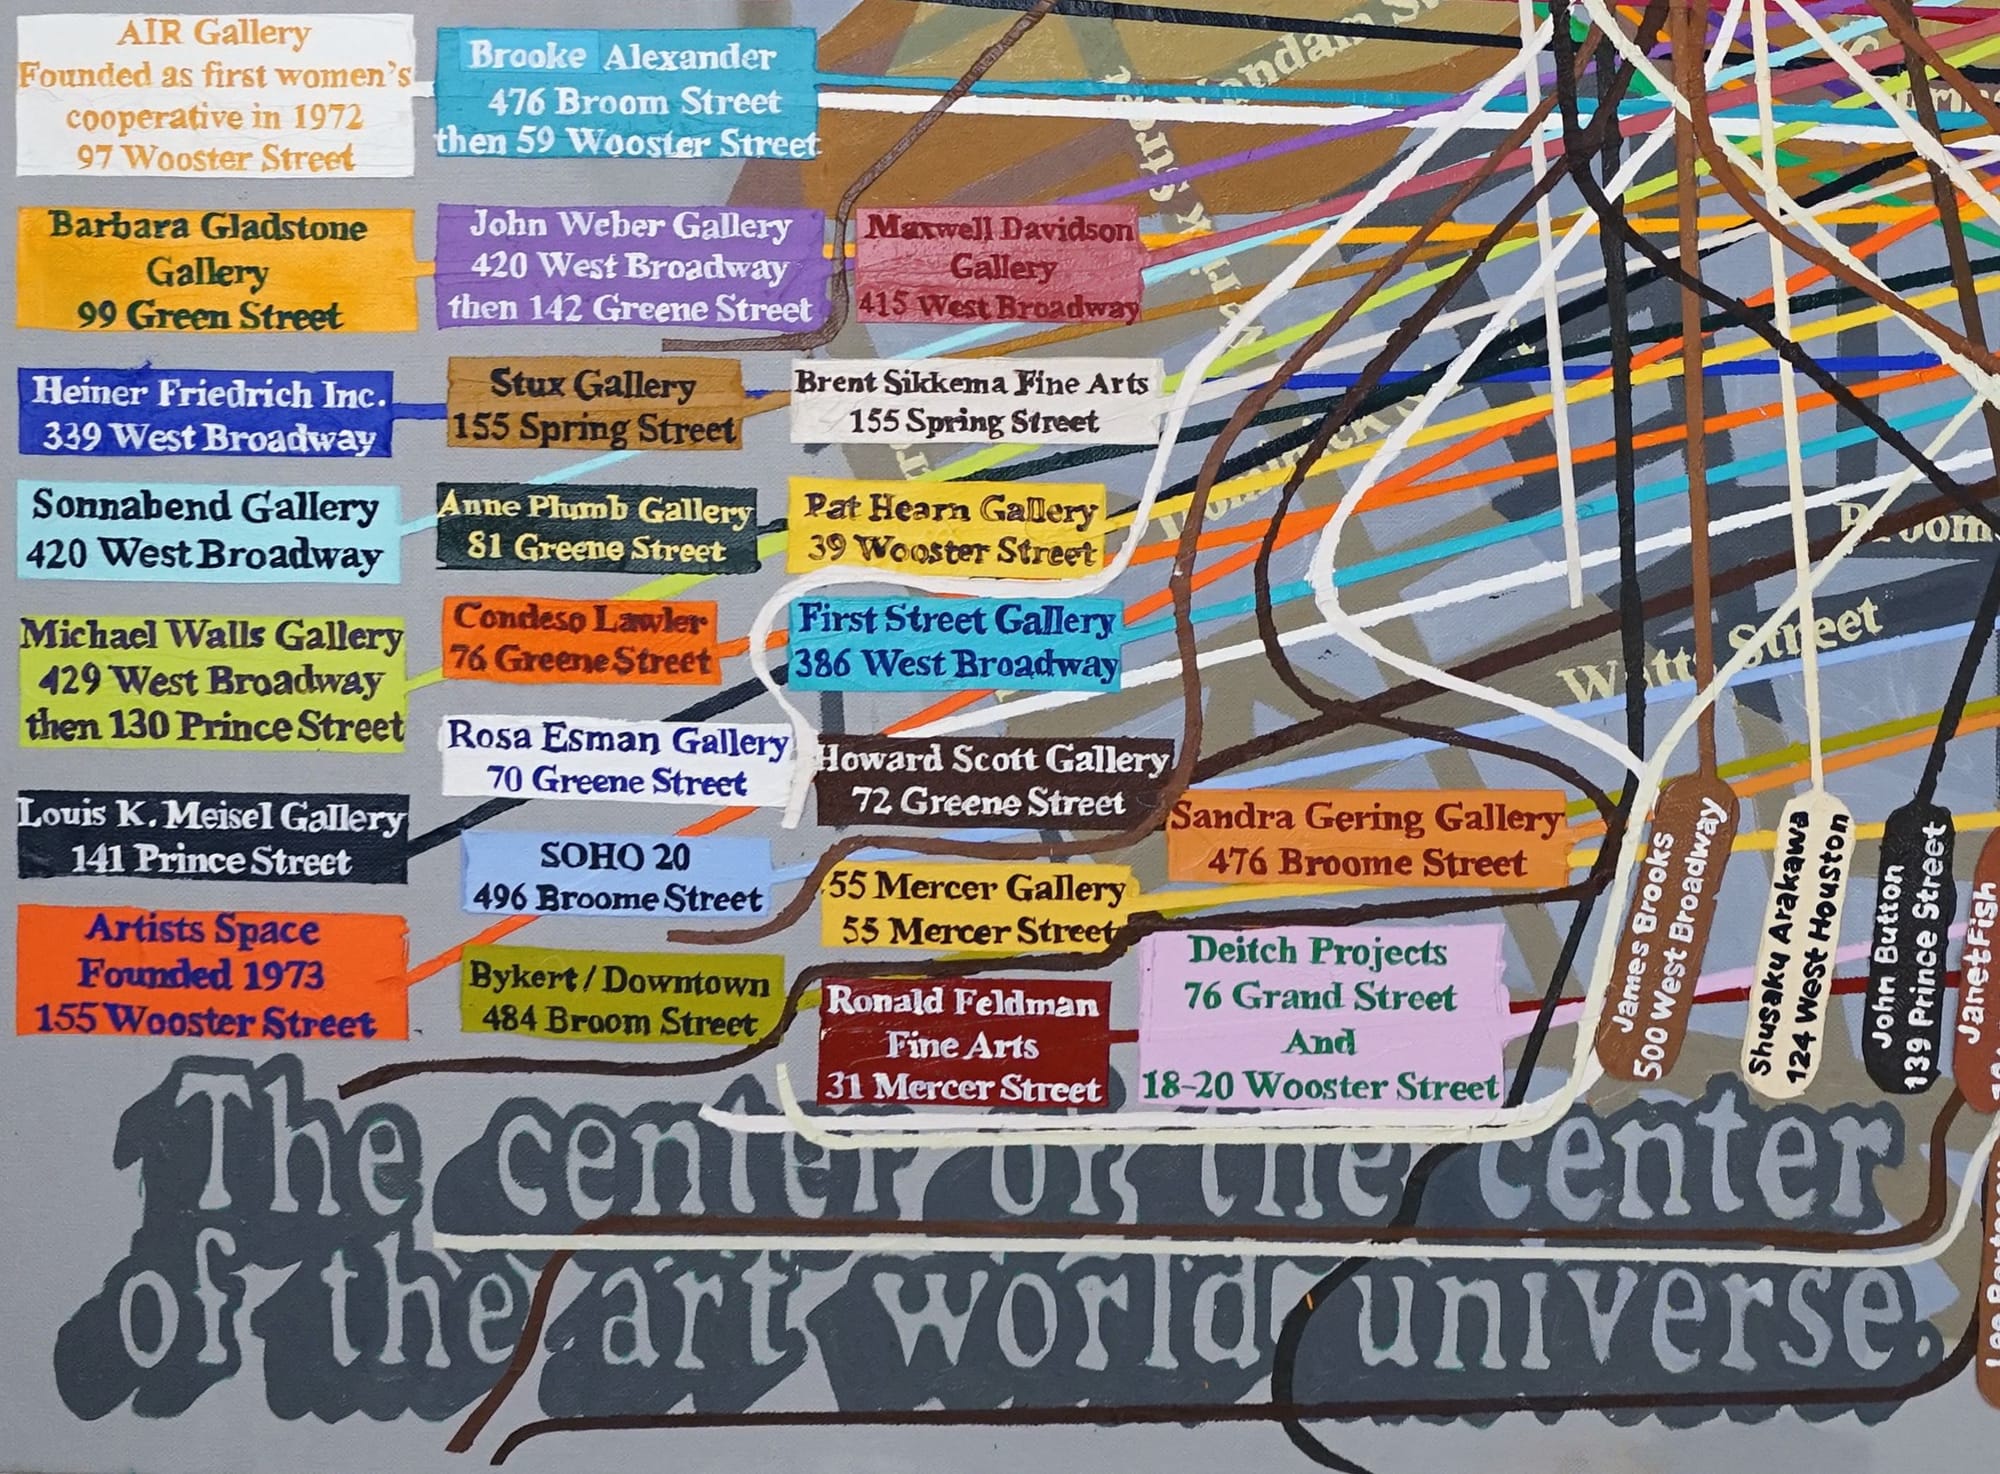 AIR Gallery
Founded as first women's
cooperative in 1972
97 Wooster Street
Brooke Alexander
476 Broom Street
then 59 Wooster Street
Barbara Gladstone
Gallery
99 Green Street
John Weber Gallery
420 West Broadway
then 142 Greene Street
Maxwell Davidson
Gallery
415 West Broadway
Heiner Friedrich Inc.
339 West Broadway
Stux Gallery
155 Spring Street
Brent Sikkema Fine Arts
155 Spring Street
Sonnabend Gallery
420 West Broadway
Anne Plumb Gallery
81 Greene Street
Pat Hearn Gallery
39 Wooster Street
Michael Walls Gallery
429 West Broadway
then 130 Prince Street
Condeso Lawler
76 Greene Street
First Street Gallery
386 West Broadway
Rosa Esman Gallery
70 Greene Street
Howard Scott Gallery
72 Greene Street
Louis K. Meisel Gallery
141 Prince Street
SOHO 20
496 Broome Street
55 Mercer Gallery
55 Mercer Street
Sandra Gering Gallery
476 Broome Street
Artists Space
Founded 1973
155 Wooster Street
Bykert / Downtown
484 Broom Street
Ronald Feldman
Fine Arts
31 Mercer Street
Deitch Projects
76 Grand Street
And
18-20 Wooster Street
James Brooks
500 West Broadway
Shusaku Arakawa
124 West Houston
John Button
139 Prince Street
Janet Fish
Vandam
Watts Street
Broom
The center of the center
of the art world universe.